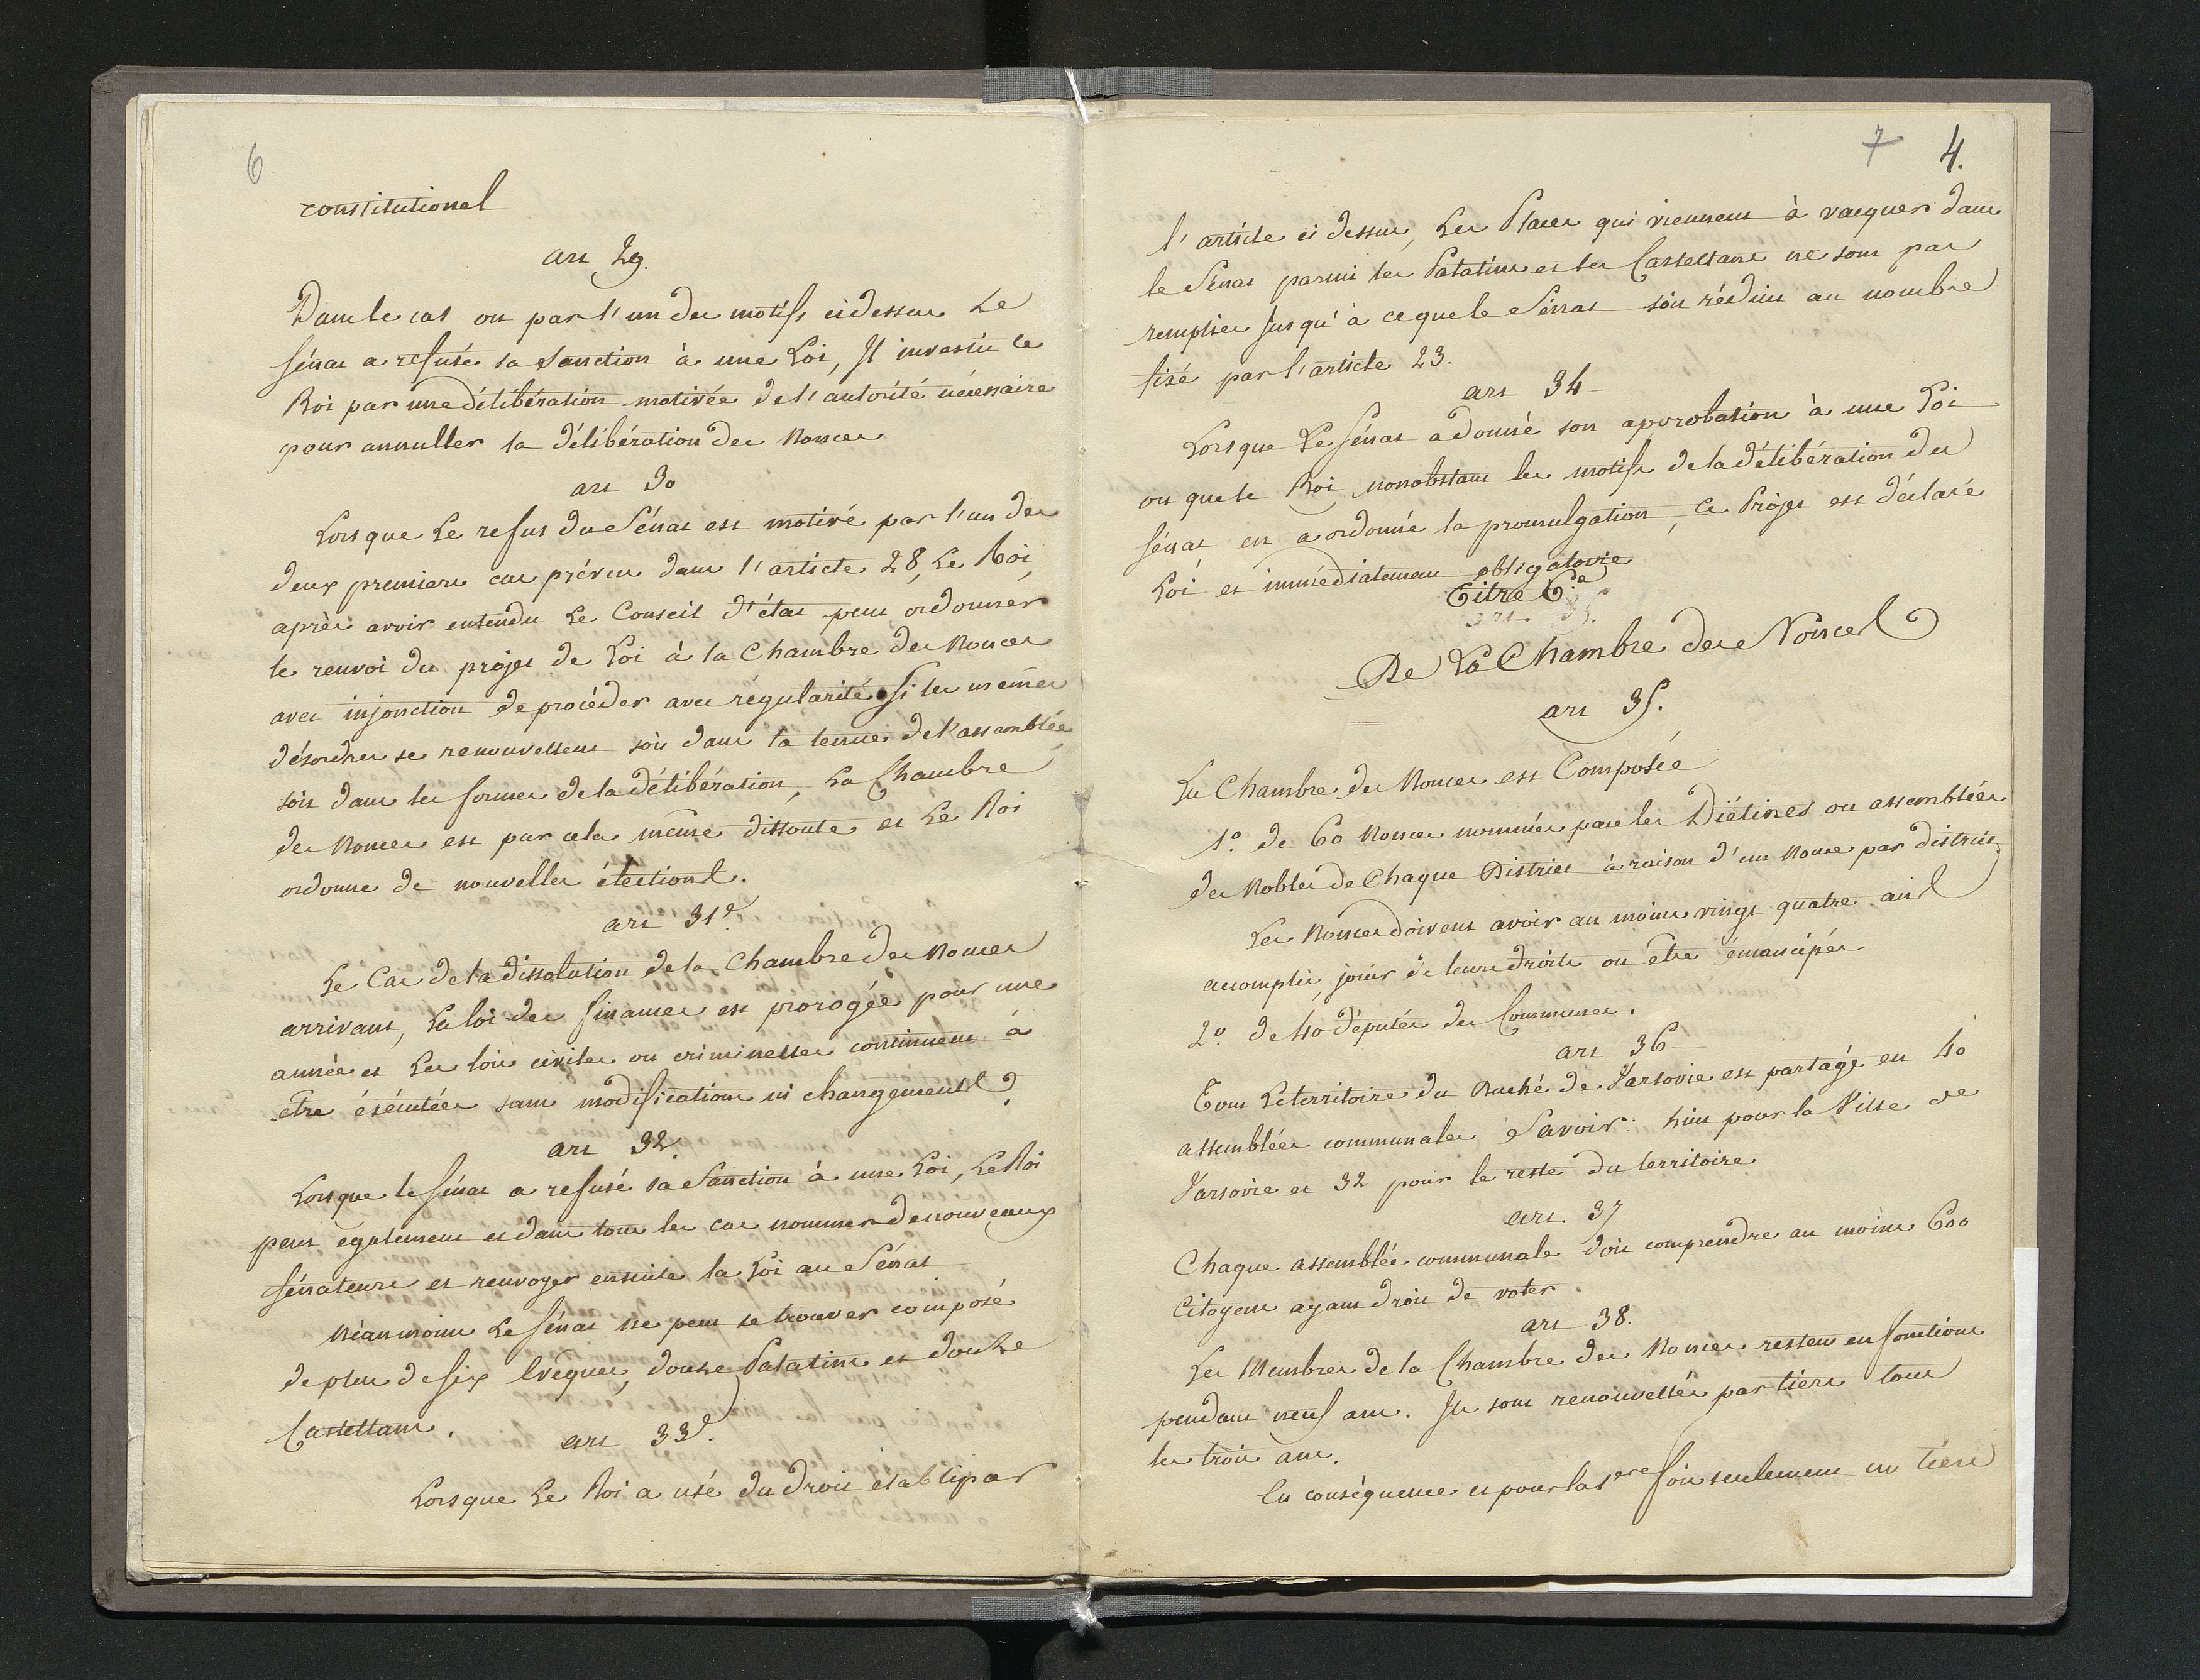 6
constitutionel
art 29.
Dans le cas ou par l'un des motifs cidessus Le
sénat a refusé sa Sanction à une Loi, Il investit le
Roi par une délibération motivée de l'autorité nécessaire
pour annuller la délibération des Nonces
art 30
Lorsque Le refus du Sénat est motivé par l'un des
deux premiers cas prévus dans l'article 28, Le Roi,
après avoir entendu Le Conseil d'état peut ordonner
le renvoi du projet de Loi à la Chambre des Nonces
avec injonction de procéder avec régularité. Si les mêmes
désordres se renouvellent soit dans la tenue de l'assemblée,
soit dans les formes de la délibération, La Chambre
des Nonces est par cela même dissoute et Le Roi
ordonne de nouvelles élections.
art 31e
Le Cas de la dissolution de la Chambre des Nonces
arrivant, La loi des finances est prorogée pour une
année et Les lois civiles ou criminelles continuent à
être éxécutées sans modifications ni changements.
art 32.
Lorsque le Sénat a refusé sa Sanction à une Loi, Le Roi
peut également et dans tous les cas nommer de nouveaux
sénateurs et renvoyer ensuite la Loi au Sénat
Néanmoins Le Sénat ne peut se trouver composé
de plus de six Evêques, douze Palatins et douze
Castellans.
art 33e.
Lorsque Le Roi a usé du droit établi par
7 4.
l'article ci dessus, Les Places qui viennent à vacquer dans
le Sénat parmi les Palatins et les Castellans ne sont pas
remplies jusqu'à ceque le Sénat soit réduit au nombre
fixé par l'article 23.
art 34
Lorsque Le Sénat a donné son aprobation à une Loi
ou que le Roi nonobstant les motifs de la délibération du
sénat en a ordonné la promulgation, ce Projet est déclaré
Loi et immédiatement obligatoire
Titre 6e
art 35.
De La Chambre des Nonces
art 35.
La Chambre des Nonces est Composée
1o. de 60 Nonces nommés par les Diétines ou assemblées
des Nobles de Chaque District à raison d'un Nonce par district
Les Nonces doivent avoir au moins vingt quatre ans
accomplis, jouir de leurs droits ou être émancipés
2o. de 40 députés des Communes.
art 36
Tout Le territoire du Duché de Varsovie est partagé en 40
assemblées communales Savoir: huit pour la Ville de
Varsovie et 32 pour le reste du territoire
art. 37
Chaque assemblée communale doit comprendre au moins 600
Citoyens ayant droit de voter.
art 38.
Les Membres de la Chambre des Nonces restent en fonctions
pendant neuf ans. Ils sont renouvellés par tiers tous
les trois ans.
En conséquence et pour la 1ere fois seulement un tiers